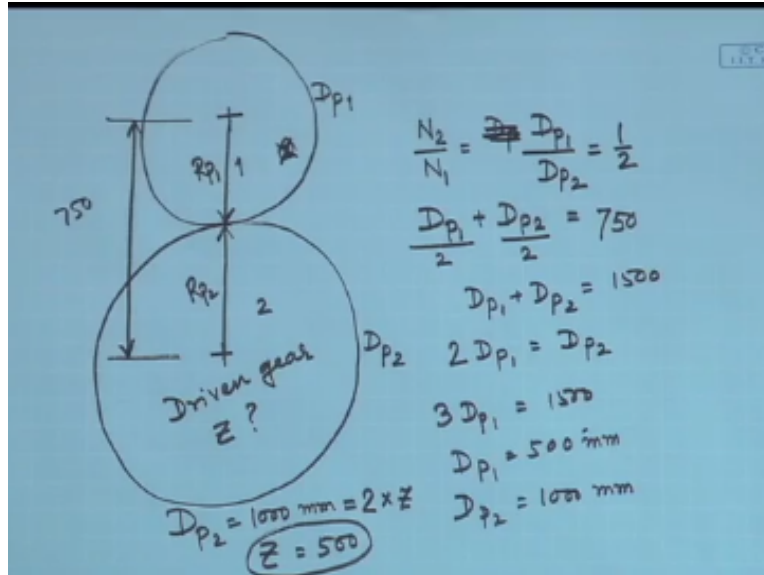 D_P1
R_P1 1
750
R_P2
2
D_P2
Driven gear
Z ?
D_P2 = 1000 mm = 2 × Z
Z = 500
N_2/N_1 = D_P1/D_P2 = 1/2
D_P1/2 + D_P2/2 = 750
D_P1 + D_P2 = 1500
2 D_P1 = D_P2
3 D_P1 = 1500
D_P1 = 500 mm
D_P2 = 1000 mm